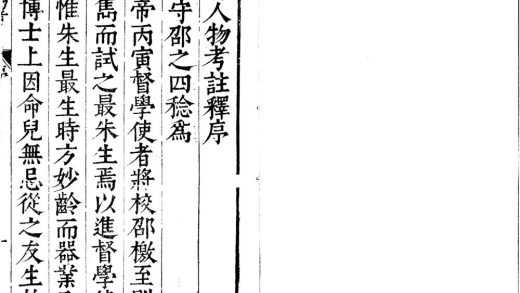 人物考註釋序
守邵之四稔為
帝丙寅督學使者將校邵檄至
雋而試之最朱生焉以進督學
惟朱生最生時方妙齡而器業
博士上因命兒無忌從之友生